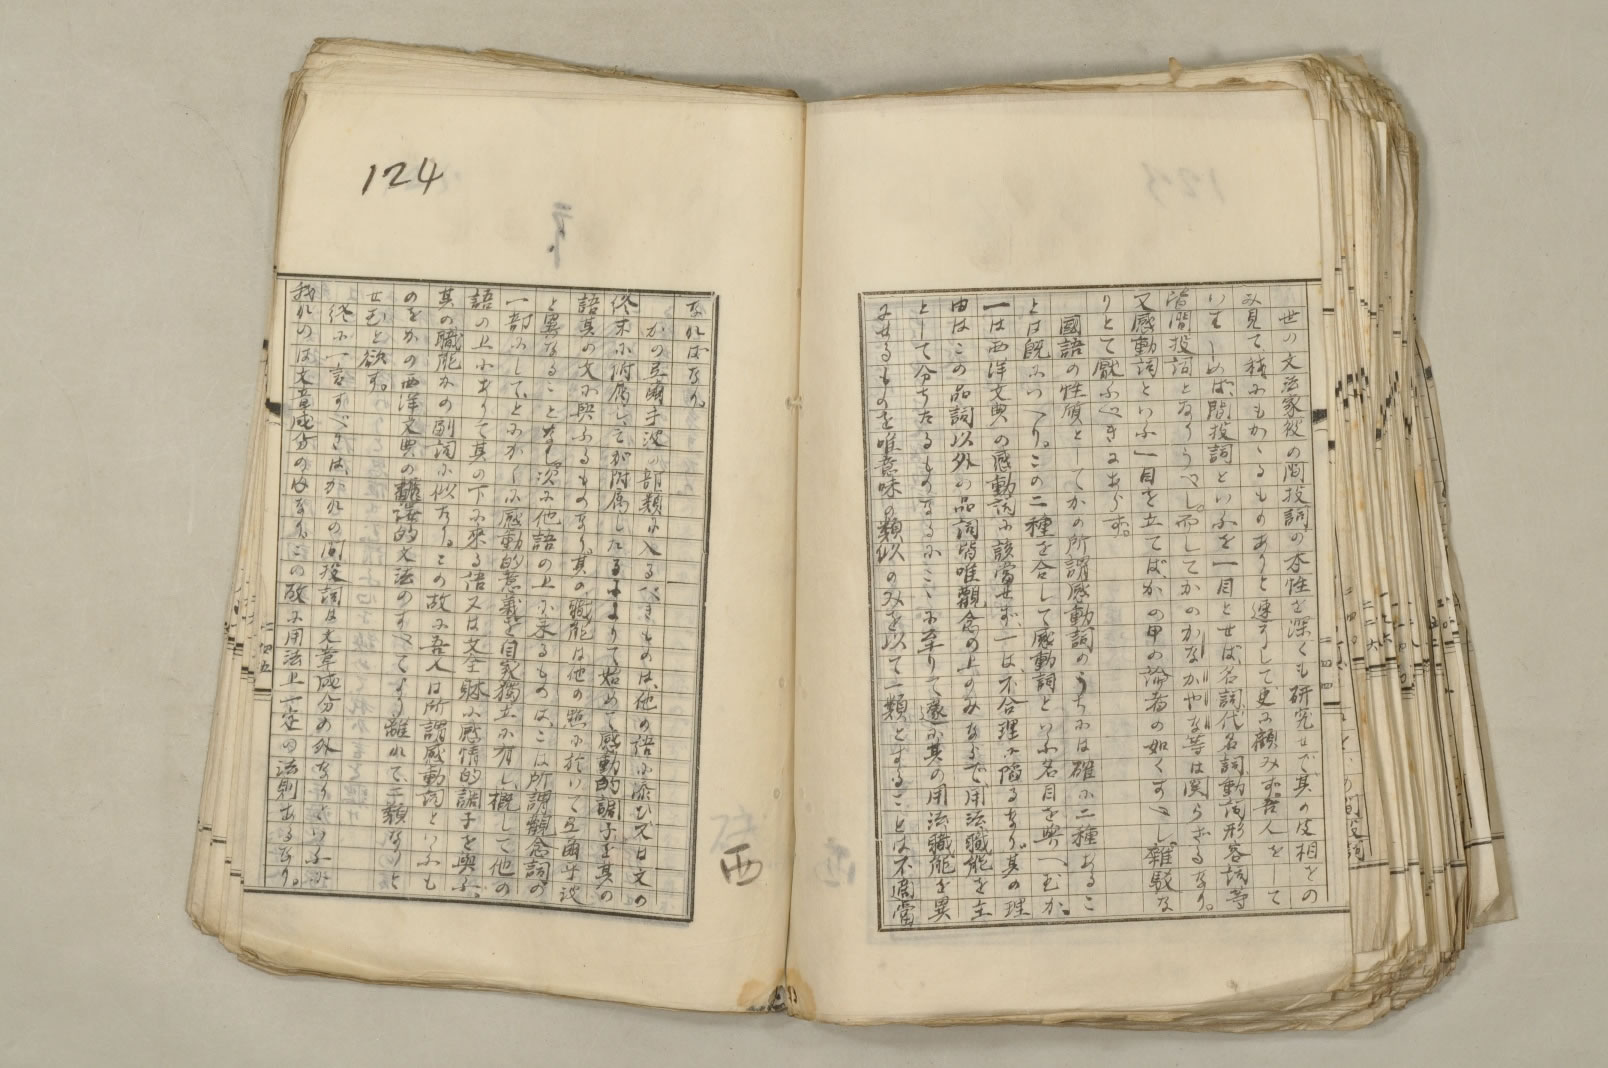 世の文法家彼の間投詞の本性を深くも研究せで其の皮相をの
み見て我にもかゝるものありと速了して更に顧みず。吾人をして
いはしめば、間投詞といふを一目とせば、名詞代名詞動詞形容詞等
皆間投詞となりうべし。而してかのかなかやな等は関らざるなり。
又感動詞といふ一目を立てば、かの甲の論者の如くすべし。雑駁な
りとて厭ふべきにあらず。
國語の性質としてかの所謂感動詞のうちには確に二種あるこ
とは既にいへり。この二種を合して感動詞といふ名目を與へむか。
一は西洋文典の感動詞に該当せず、一は不合理に陥るなり。其の理
由はこの品詞以外の品詞皆唯観念の上のみならで用法職能を主
として分ちたるものなるにここに至りて遂に其の用法職能を異
にせるものを唯意味の類似のみを以て一類とすることは不適当
なればなり。
かの弖爾乎波の部類に入るべきものは、他の語に添ひ又は文の
終末に附属してが附属したるによりて始めて感動的調子を其の
語其の文に與ふるものなり。其の職能は他の照に於いて弖爾乎波
と異なることなし。次に他語の上に来るものは、こは所謂観念詞の
一部にして、とにかくに感動的意義を自家獨立に有し、概して他の
語の上にありて其の下に来る語又は文全躰に感情的調子を與ふ。
其の職能かの副詞に似たり。この故に吾人は所謂感動詞といふも
のをかの西洋文典の的文法のすべてより離れて二類なりと
せむと欲す。
終に一言すべきは、かれの間投詞は文章成分の外なりといふに
我れのは文章成分の内なり。この故に用法上一定の法則あるなり。
124
西
二四四
二四五